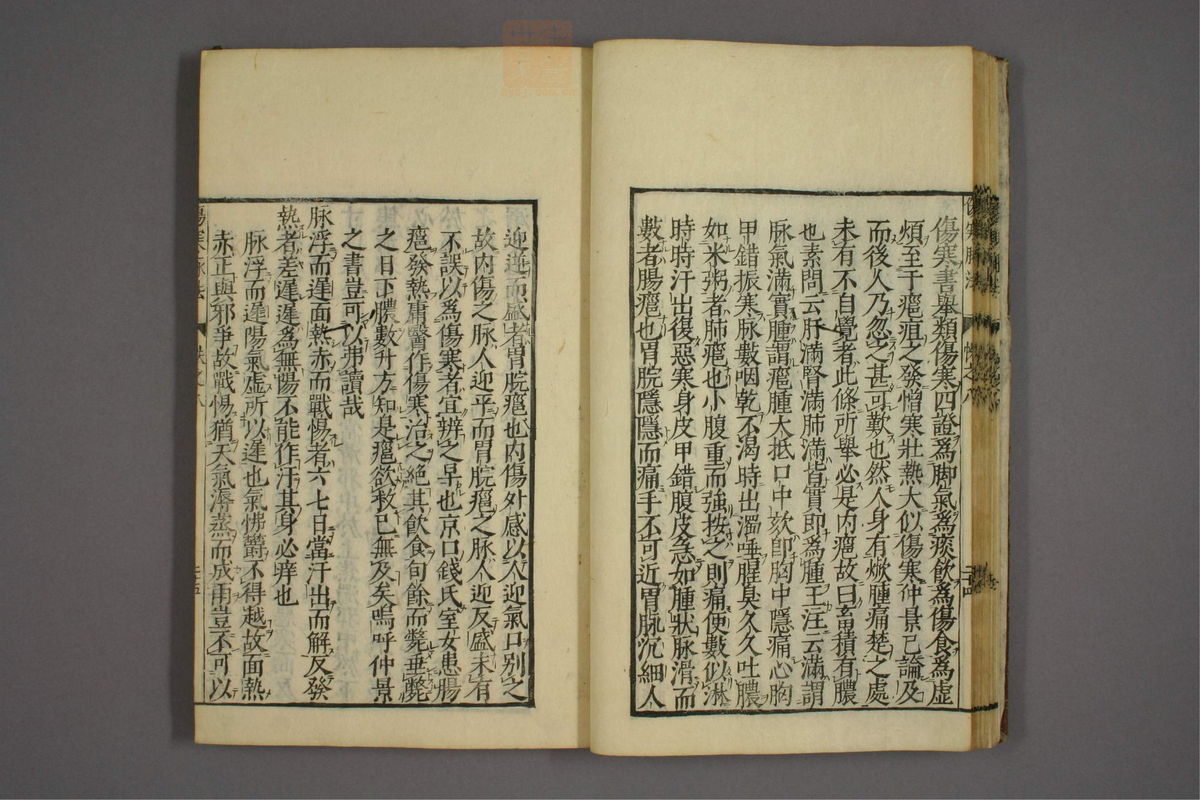 傷寒書舉類傷寒四證爲脚氣爲痰飲爲傷食爲虛
煩至于癰疽之發憎寒壯熱大似傷寒仲景已論及
而後人乃忽之甚可歎也然人身有焮腫痛楚之處
未有不自覺者此條所舉必是內癰故曰畜積有膿
也素問云肝滿腎滿肺滿皆實即爲腫王注云滿謂
脉氣滿實腫謂癰腫大抵口中欬即胸中隱痛心胸
甲錯振寒脉數咽乾不渴時出濁唾腥臭久久吐膿
如米粥者肺癰也小腹重而強按之則痛便數似淋
時時汗出復惡寒身皮甲錯腹皮急如腫狀脉滑而
數者腸癰也胃脘隱隱而痛手不可近胃脉沉細人
迎逆而盛者胃脘癰也內傷外感以人迎氣口別之
故內傷之脉人迎平而胃脘癰之脉人迎反盛未有
不誤以爲傷寒者宜辨之早也京口錢氏室女患腸
癰發熱庸醫作傷寒治之絕其飲食旬餘而斃垂斃
之日下膿數升方知是癰欲救已無及矣嗚呼仲景
之書豈可以弗讀哉
脉浮而遲面熱赤而戰惕者六七日當汗出而解反發
熱者差遲遲爲無陽不能作汗其身必痒也
脉浮而遲陽氣虛所以遲也氣怫欝不得越故面熱
赤正與邪爭故戰惕猶天氣溽蒸而成雨豈不可以
傷寒脉法